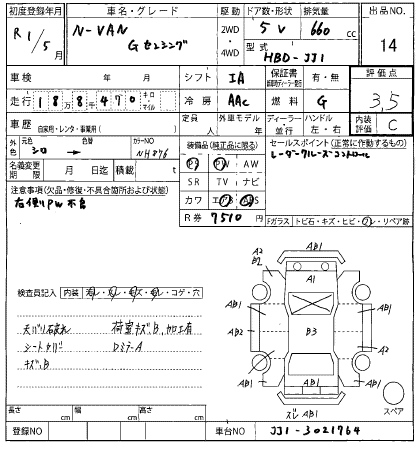 初度登録年月 車名・グレード 駆動 ドア数・形状 排気量 出品NO.
R1/5月 N-VAN Gセンシング 2WD・4WD 5V 660cc 14
型式 HBD-JJ1
車検 年 月 シフト IA 保証書 有・無 評価点
走行 188470 キロ・マイル 冷房 AAC 燃料 G 3,5
車歴 自家用・レンタ・事業用( ) 定員 人 外車モデル 年 ディーラー・並行 ハンドル 左・右 内装評価 C
外色 元色 シロ 色替 カラーNO NH876
装備品(純正品に限る) セールスポイント(正常に作動するもの)
PS PW AW レーダークルーズコントロール
名義変更期限 月 日迄 積載 t
SR TV ナビ
注意事項(欠品・修復・不具合箇所および状態)
カワ エアB ABS
R券 7510
Fガラス トビ石・キズ・ヒビ・ リペア跡
検査員記入 内装 コゲ・穴
荷室キズB,加工有
Dミラー A
キズ,B
A2 B2 AB1 A1 AB1 AB1
AB2 B3 AB1 A2
AB1 AB1 AB1
スペア
長さ cm 幅 cm 高さ cm
登録NO 車台NO JJ1-3021764